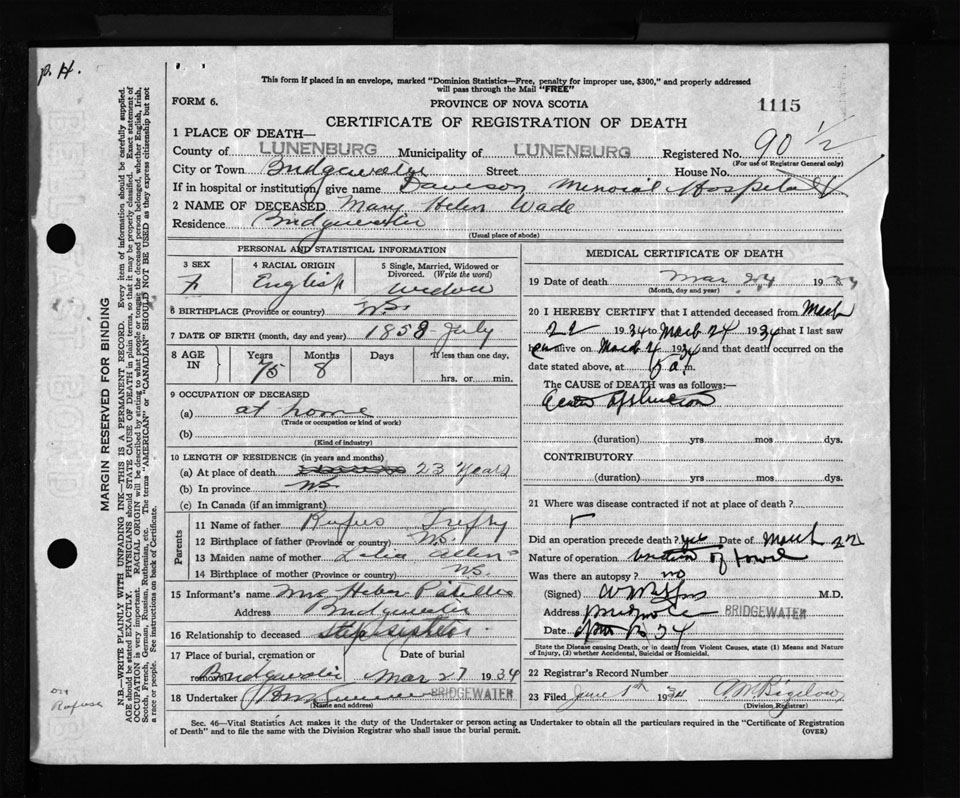 p. H.
This form if placed in an envelope, marked "Dominion Statistics—Free, penalty for improper use, $300," and properly addressed
will pass through the Mail "FREE"
FORM 6.
PROVINCE OF NOVA SCOTIA
1115
CERTIFICATE OF REGISTRATION OF DEATH
1 PLACE OF DEATH—
County of LUNENBURG Municipality of LUNENBURG Registered No. 90 1/2
(For use of Registrar General only)
City or Town Bridgewater Street House No.
If in hospital or institution, give name Hospital
2 NAME OF DECEASED Mary Helen Wade
Residence Bridgewater
(Usual place of abode)
PERSONAL AND STATISTICAL INFORMATION
3 SEX F
4 RACIAL ORIGIN English
5 Single, Married, Widowed or Divorced. (Write the word) Widow
6 BIRTHPLACE (Province or country) NS.
7 DATE OF BIRTH (month, day and year) 1858 July
8 AGE IN Years 75 Months 8 Days If less than one day, hrs. or min.
9 OCCUPATION OF DECEASED
(a) at home
(Trade or occupation or kind of work)
(b)
(Kind of industry)
10 LENGTH OF RESIDENCE (in years and months)
(a) At place of death 23 Years
(b) In province NS
(c) In Canada (if an immigrant)
Parents
11 Name of father Rufus Trefry
12 Birthplace of father (Province or country) NS.
13 Maiden name of mother Allen
14 Birthplace of mother (Province or country) NS.
15 Informant's name Mrs Heber
Address Bridgewater
16 Relationship to deceased step sister
17 Place of burial, cremation or removal Bridgewater Date of burial Mar 27 1934
18 Undertaker BRIDGEWATER
(Name and address)
MEDICAL CERTIFICATE OF DEATH
19 Date of death Mar 24 19
(Month, day and year)
20 I HEREBY CERTIFY that I attended deceased from March
22 1934 to March 24 1934 that I last saw
alive on March 1934 and that death occurred on the
date stated above, at 5 a.m.
The CAUSE of DEATH was as follows:—
obstruction
(duration) yrs mos dys.
CONTRIBUTORY
(duration) yrs mos dys.
21 Where was disease contracted if not at place of death?
Did an operation precede death? yes Date of March 22
Nature of operation of bowel
Was there an autopsy? no
(Signed) M.D.
Address BRIDGEWATER
Date 34
State the Disease causing Death, or in death from Violent Causes, state (1) Means and Nature
of Injury, (2) whether Accidental, Suicidal or Homicidal.
22 Registrar's Record Number
23 Filed June 1st 1934 Bigelow
(Division Registrar)
Sec. 46—Vital Statistics Act makes it the duty of the Undertaker or person acting as Undertaker to obtain all the particulars required in the "Certificate of Registration
of Death" and to file the same with the Division Registrar who shall issue the burial permit.
(OVER)
MARGIN RESERVED FOR BINDING
N.B.—WRITE PLAINLY WITH UNFADING INK—THIS IS A PERMANENT RECORD. Every item of information should be carefully supplied.
AGE should be stated EXACTLY. PHYSICIANS should STATE CAUSE OF DEATH in plain terms, so that it may be properly classified. Exact statement of
OCCUPATION is very important. RACIAL ORIGIN will be described by stating to what people or tongue the deceased person belonged, whether English, Irish,
Scotch, French, German, Russian, Ruthenian, etc. The terms "AMERICAN" or "CANADIAN" SHOULD NOT BE USED as they express citizenship but not
a race or people. See instructions on back of Certificate.